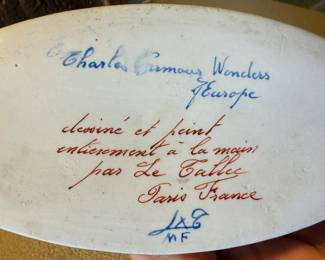 Charles Armour Wonders
of Europe
dessiné et peint
entièrement à la main
par Le Tallec
Paris France
LXT
MF